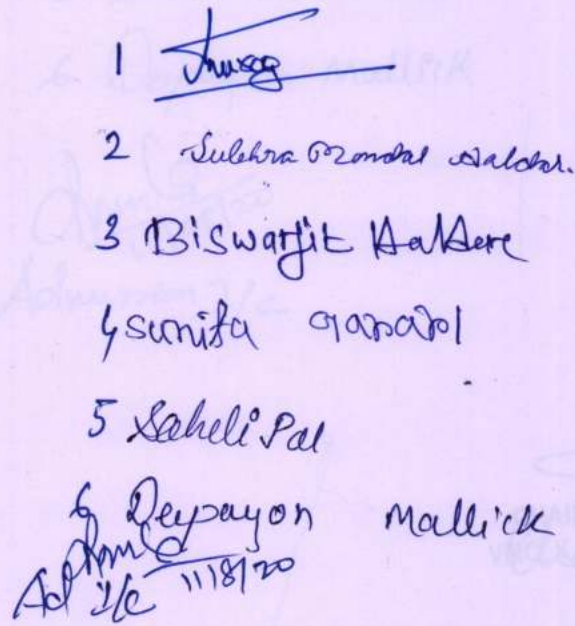 1 Anurag
2 Sulekha Mondal Haldar.
3 Biswarjit Haldere
4 Sunita
5 Saheli Pal
6 Depayon Mallick
Ad I/C 11/8/20